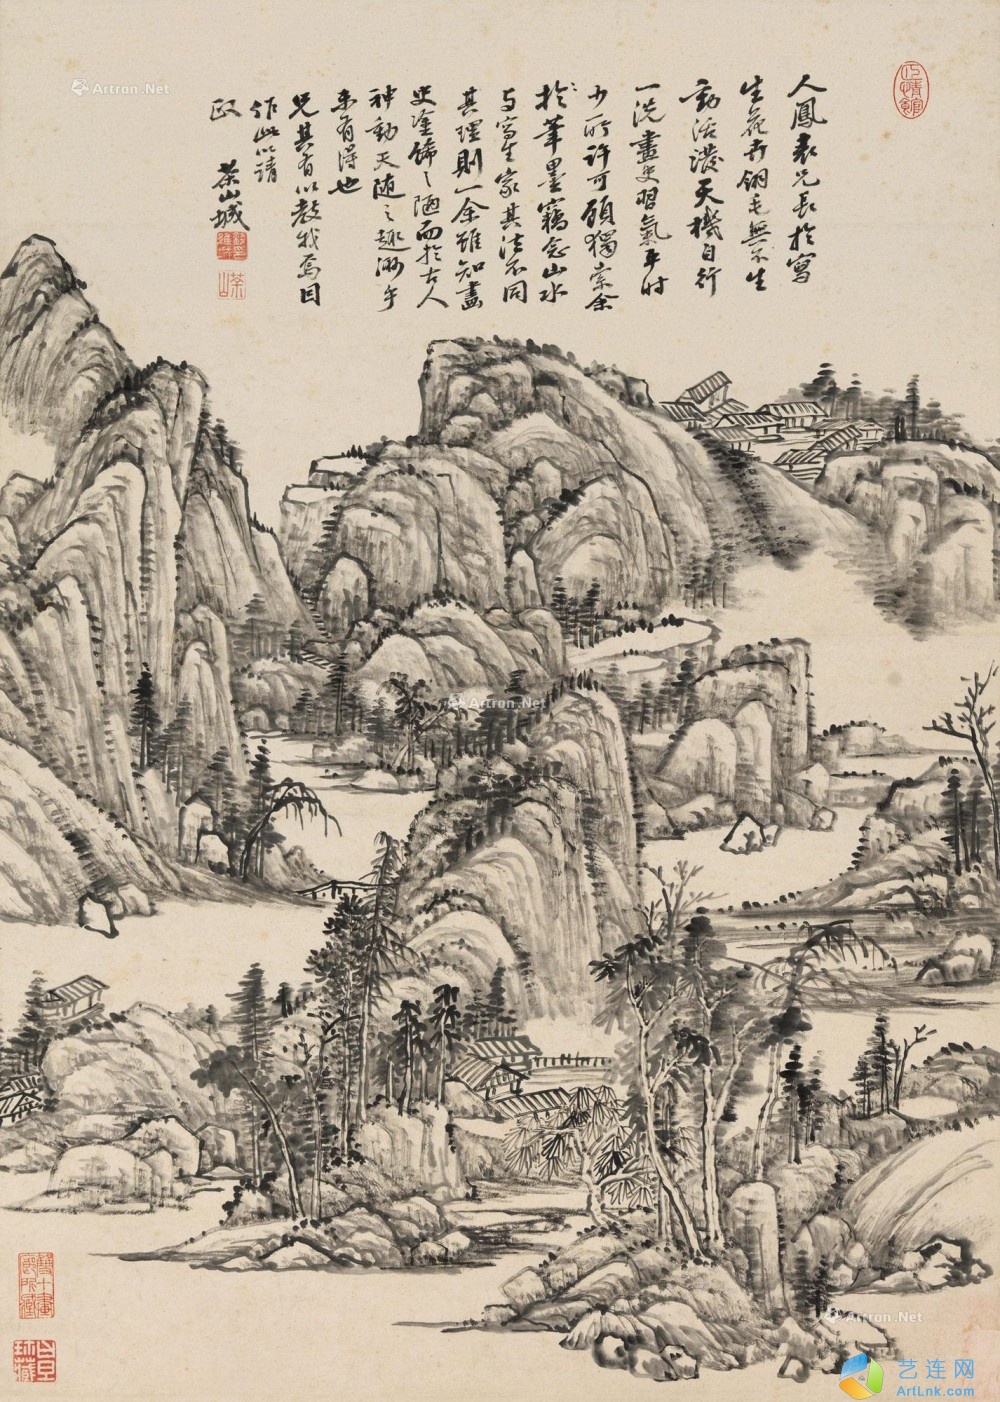 人鳳表兄長於寫
生花卉翎毛無不生
動活潑天機自行
一洗畫史習氣平時
少所許可顧獨索余
於筆墨竊念山水
與寫生家其法不同
其理則一余雖知畫
史塗飾之陋而於古人
神動天隨之趣渺乎
未有得也
兄其有以教我焉因
作此以請
政 茶山城
茶山
珍藏
Artron.Net
Artron.Net
Artron.Net
艺连网
ArtLnk.com